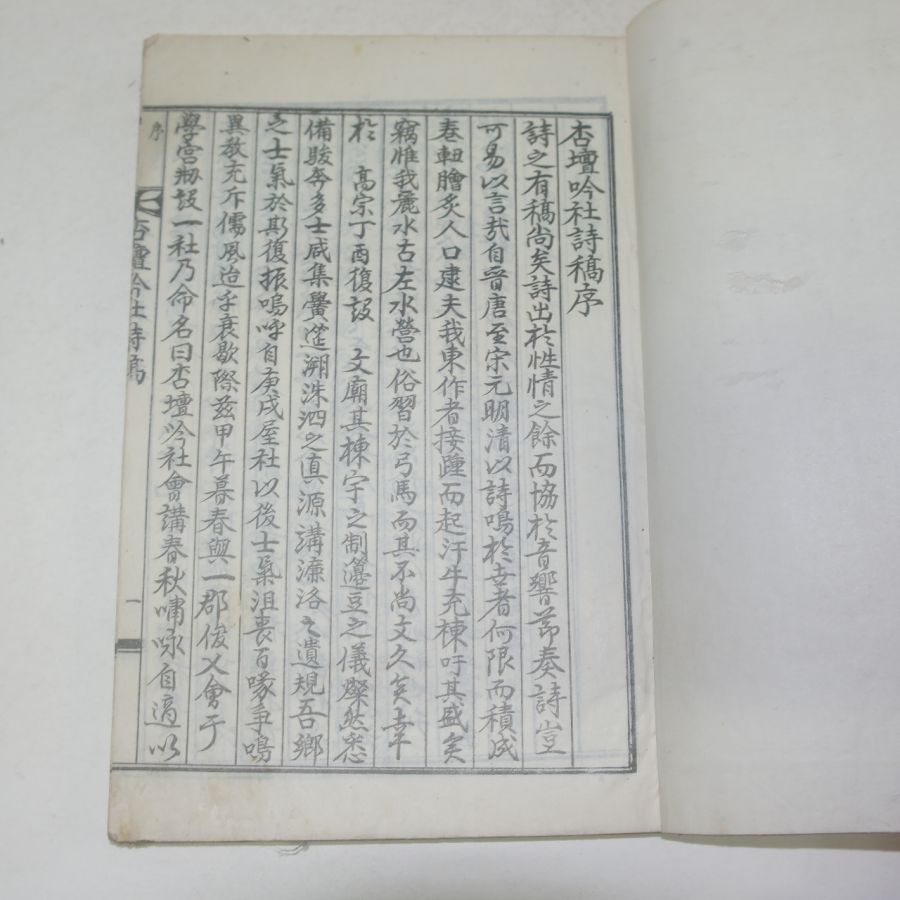 杏壇吟社詩稿序
詩之有稿尚矣詩出於性情之餘而協於音響節奏詩豈
可易以言哉自晉唐至宋元明清以詩鳴於世者何限而積成
卷軸膾炙人口逮夫我東作者接踵而起汗牛充棟吁其盛矣
竊惟我麗水古左水營也俗習於弓馬而其不尚文久矣幸
於 高宗丁酉復設 文廟其棟宇之制籩豆之儀燦然悉
備駿奔多士咸集黌筵溯洙泗之真源講濂洛之遺規吾鄉
之士氣於斯復振嗚呼自庚戌屋社以後士氣沮喪百喙爭鳴
異教充斥儒風迨乎衰歇際茲甲午暮春與一郡俊乂會于
學宮刱設一社乃命名曰杏壇吟社會講春秋嘯咏自適以
序
杏壇吟社詩稿
一